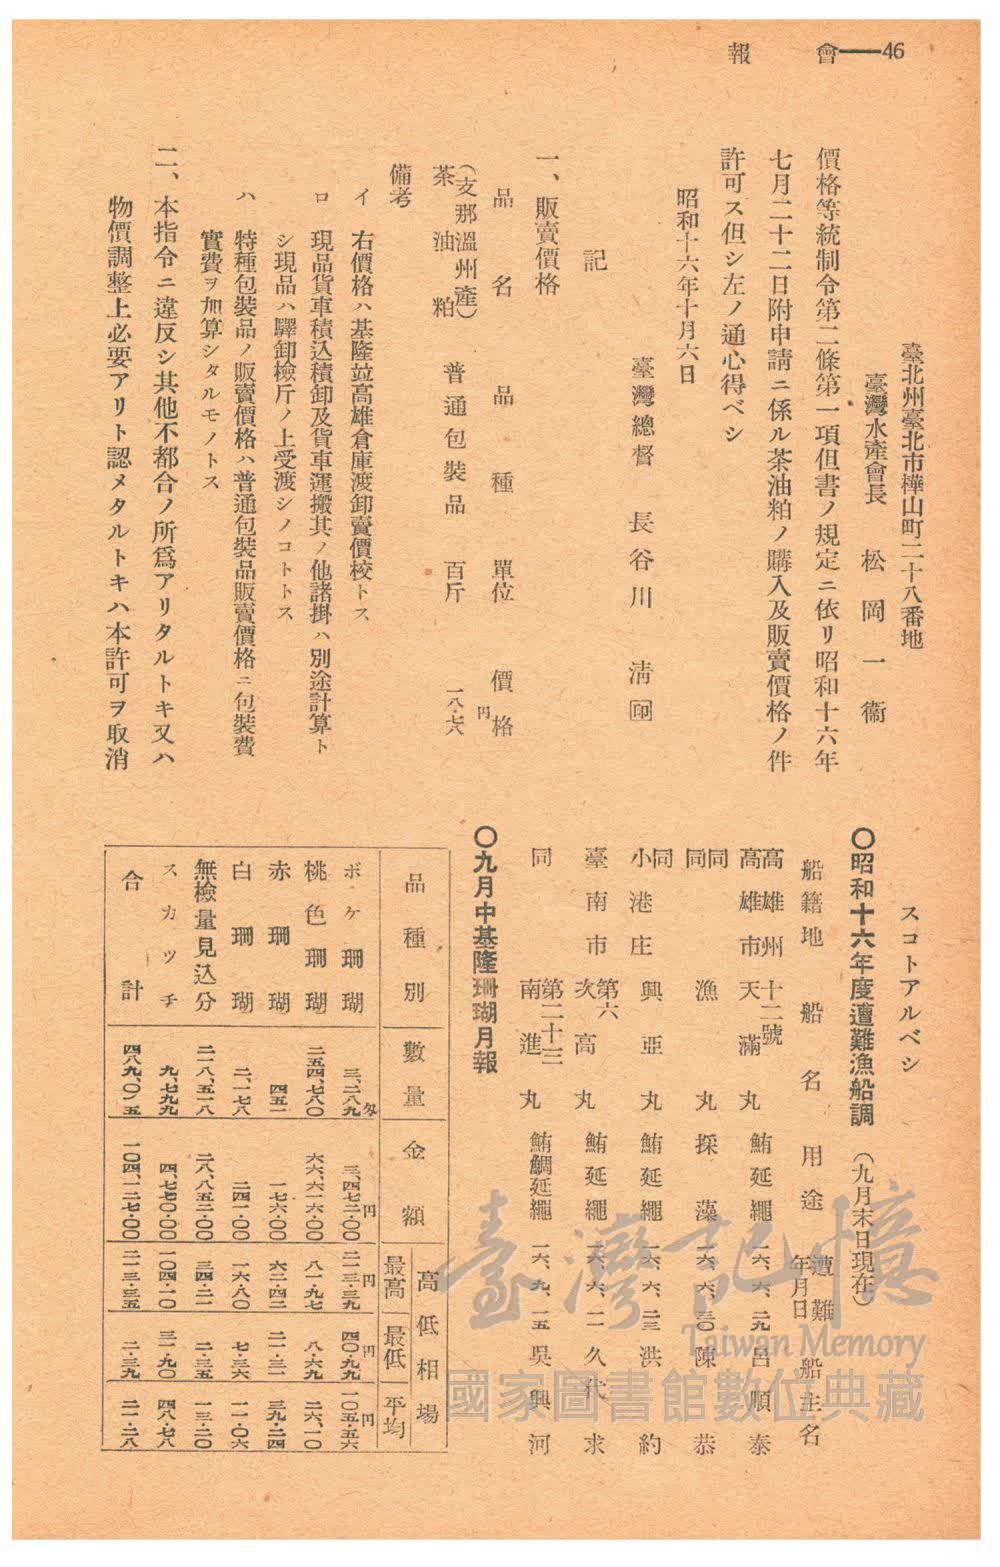 報　會——46
臺北州臺北市樺山町二十八番地
臺灣水產會長　松岡一衞
價格等統制令第二條第一項但書ノ規定ニ依リ昭和十六年
七月二十二日附申請ニ係ル茶油粕ノ購入及販賣價格ノ件
許可ス但シ左ノ通心得ベシ
昭和十六年十月六日
臺灣總督　長谷川　淸㊞
記
一、販賣價格
品名　品種　單位　價格
円
(支那溫州產)
茶油粕　普通包裝品　百斤　一八・七六
備考
イ　右價格ハ基隆竝高雄倉庫渡卸賣價校トス
ロ　現品貨車積込積卸及貨車運搬其ノ他諸掛ハ別途計算ト
シ現品ハ驛卸檢斤ノ上受渡シノコトトス
ハ　特種包裝品ノ販賣價格ハ普通包裝品販賣價格ニ包裝費
實費ヲ加算シタルモノトス
二、本指令ニ違反シ其他不都合ノ所爲アリタルトキ又ハ
物價調整上必要アリト認メタルトキハ本許可ヲ取消
スコトアルベシ
〇昭和十六年度遭難漁船調（九月末日現在）
船籍地　船名　用途　遭難年月日　船主名
高雄州高雄市　十二號天滿丸　鮪延繩　一六、六、二九　呂順泰
同同　漁丸　採藻　一六、六、三〇　陳恭
同小港庄　興亞丸　鮪延繩　一六、六、二三　洪約
臺南市　第六次高丸　鮪延繩　一六、六、一一　久代求
同　第二十三南進丸　鮪鯛延繩　一六、九、一五　吳興河
〇九月中基隆珊瑚月報
品種別　數量　金額　高低相場　最高　最低　平均
ボケ珊瑚　三、二八九匁　三、四七二・〇〇円　二一三・三九円　四〇・九九円　一〇五・五六円
桃色珊瑚　二五四、七八〇　六六、六一六・〇〇　八一・九七　八・六九　二六・一〇
赤珊瑚　四五一　一七六・〇〇　六二・四二　二一・三一　三九・二四
白珊瑚　二、一七八　二四一・〇〇　一六・八〇　七・三六　一一・〇六
無檢量見込分　二一八、五一八　二八、八五二・〇〇　三四・二一　二・三五　一三・二〇
スカツチ　九、七九九　四、七七〇・〇〇　一〇四・一〇　三一・九〇　四八・七八
合計　四八九、〇一五　一〇四、一二七・〇〇　二一三・三五　二・三九　二一・二八
臺灣記憶
Taiwan Memory
國家圖書館數位典藏